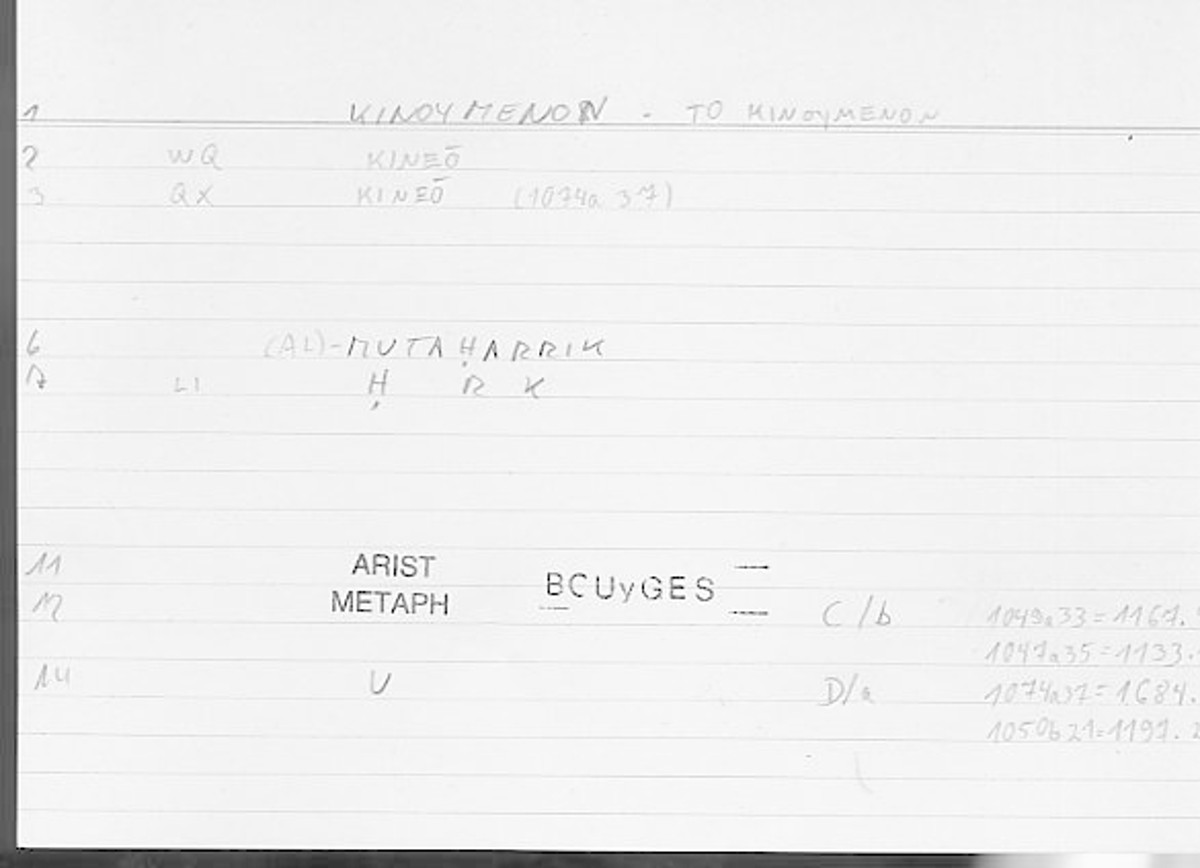 1 KINOYMENON - TO KINOYMENON
2 WQ KINEŌ
3 QX KINEŌ (1074a 37)
6 (AL)-MUTAḤARRIK
7 LI Ḥ R K
11 ARIST
BCUyGES
12 METAPH C/b 1049a33=1167.
1047a35=1133.
14 U D/a 1074a37=1684.
1050b21=1197.2